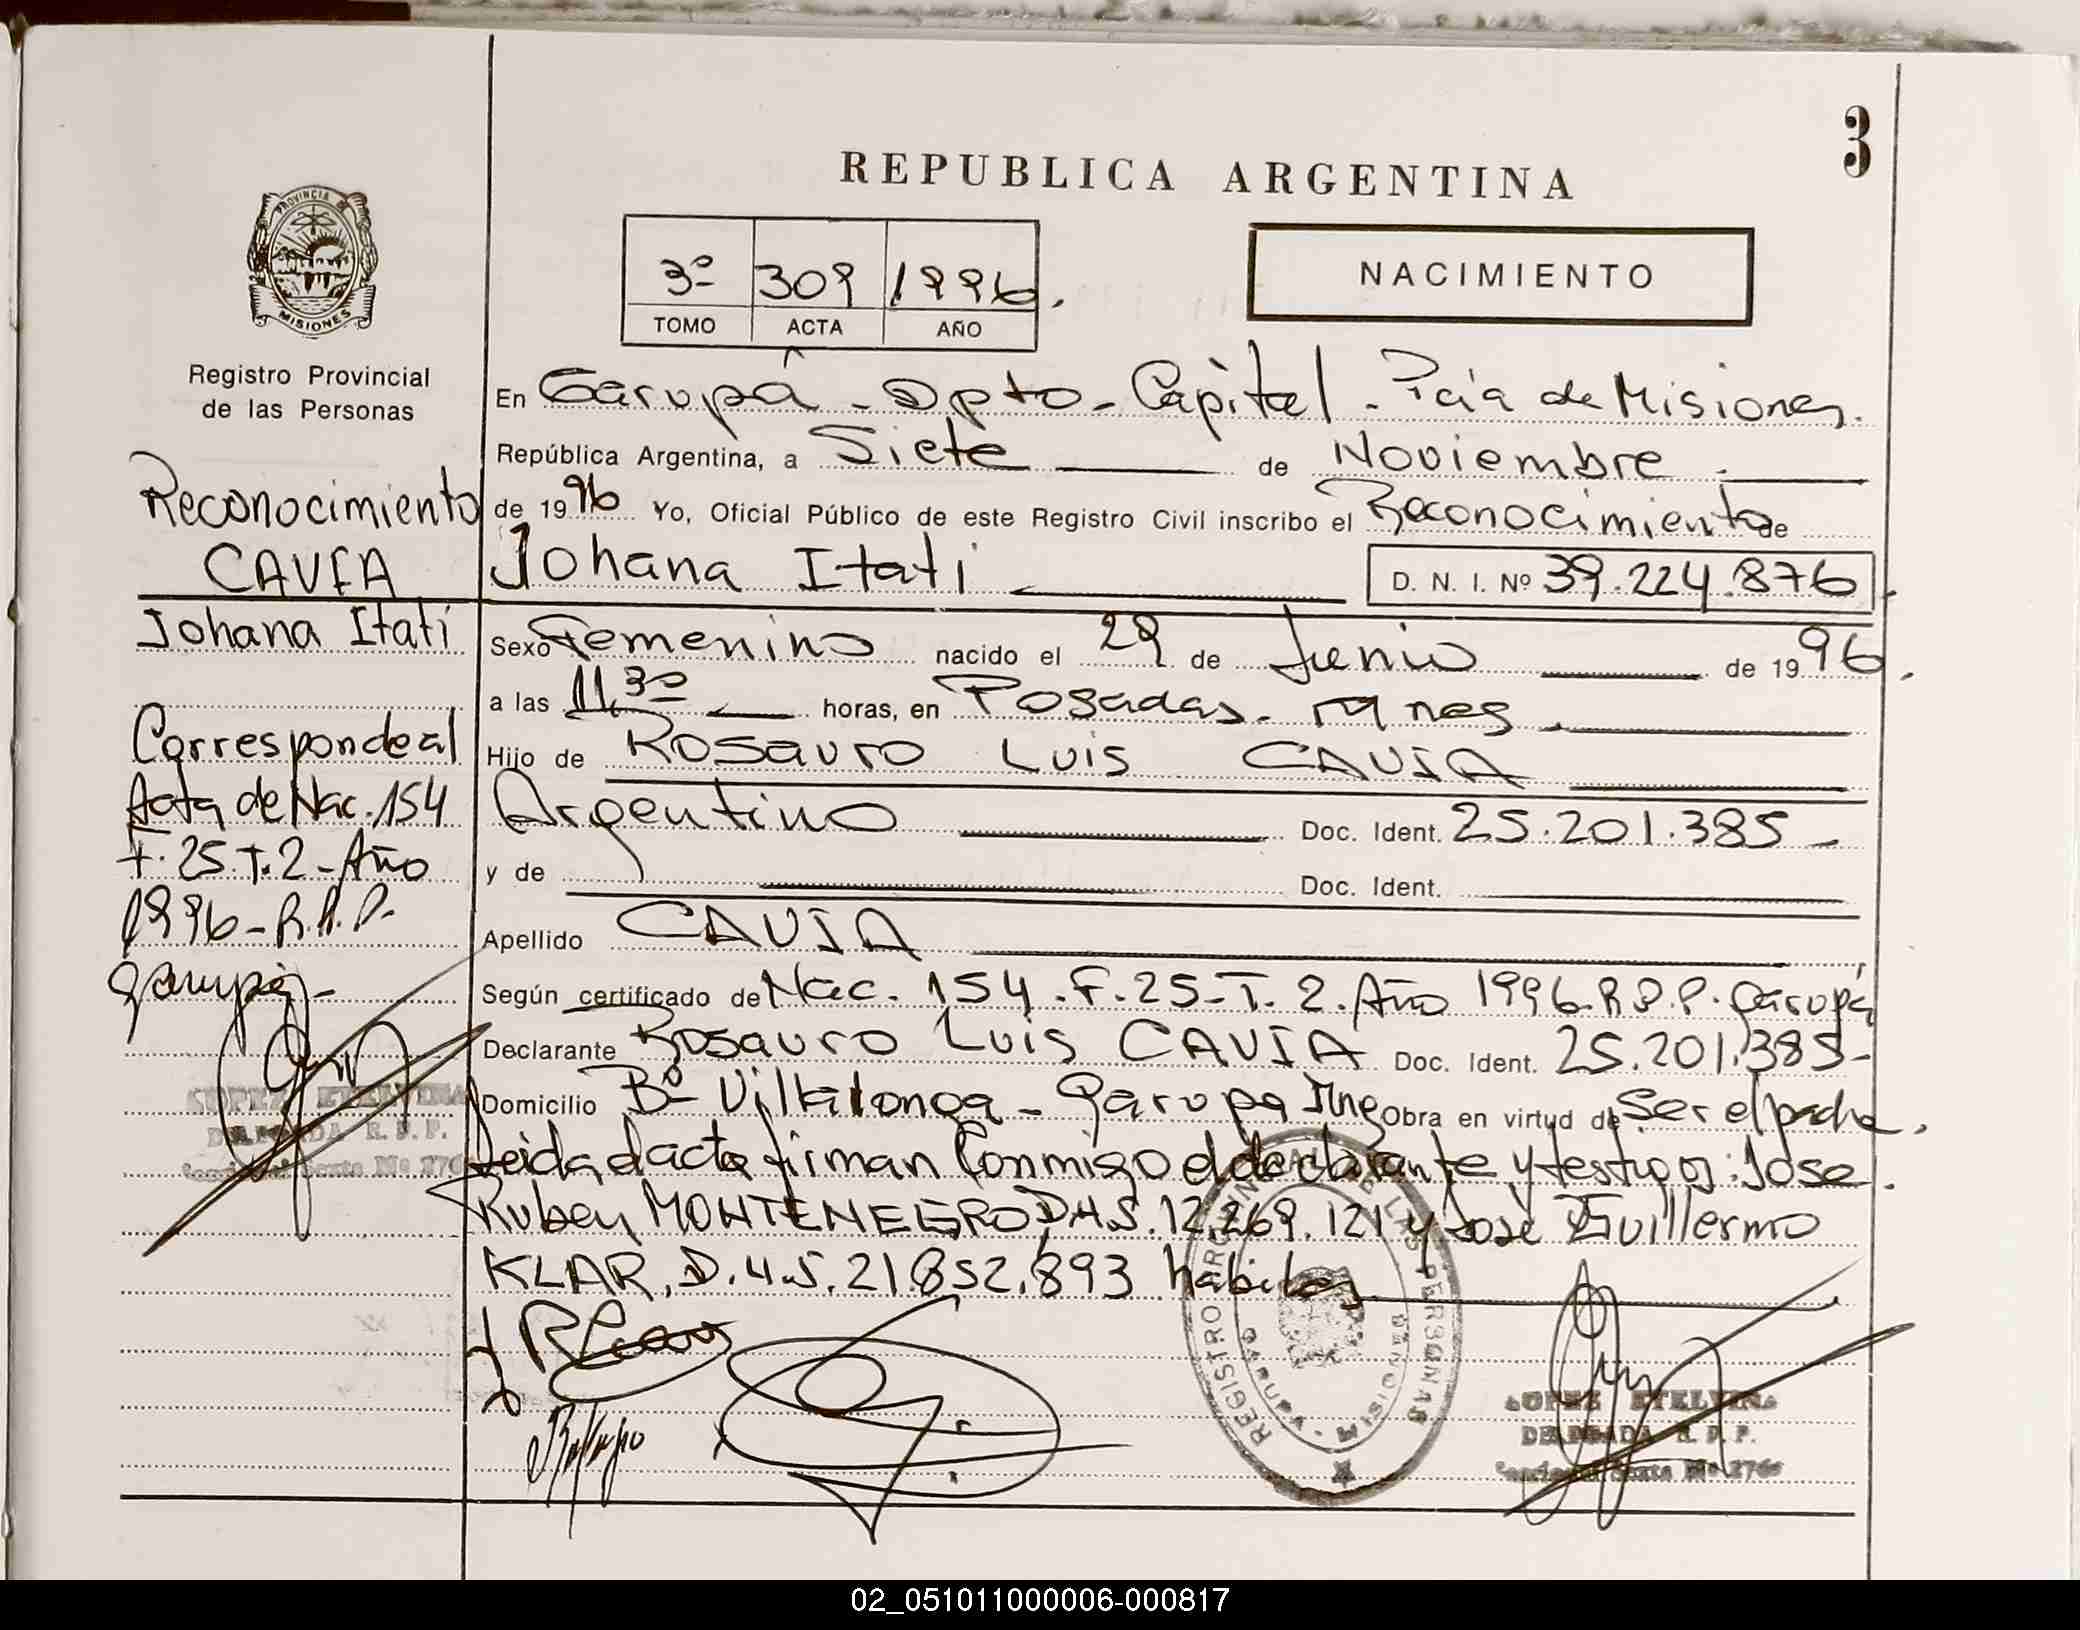 3
REPUBLICA ARGENTINA
PROVINCIA DE
MISIONES
3º 309 1996.
TOMO ACTA AÑO
NACIMIENTO
Registro Provincial
de las Personas
Reconocimiento
CAVIA
Johana Itatí
Corresponde al
Acta de Nac. 154
F. 25 T. 2 - Año
1996 - R.P.P.
Garupá -
LOPEZ ETELVINA
DELEGADA R. P. P.
En Garupá - Dpto - Capital - Pcia de Misiones.
República Argentina, a Siete de Noviembre
de 1996 Yo, Oficial Público de este Registro Civil inscribo el Reconocimiento de
Johana Itati D. N. I. Nº 39.224.876
Sexo Femenino nacido el 29 de Junio de 1996.
a las 11,30 horas, en Posadas - Mnes
Hijo de Rosauro Luis CAVIA
Argentino Doc. Ident. 25.201.385 -
y de Doc. Ident.
Apellido CAVIA
Según certificado de Nac. 154. F. 25 - T. 2. Año 1996. R.P.P. Garupá
Declarante Rosauro Luis CAVIA Doc. Ident. 25.201.385 -
Domicilio Bº Villalonga - Garupa Mnes Obra en virtud de Ser el padre.
Leida el acta firman Conmigo el declarante y testigos: Jose
Ruben MONTENEGRO D.N.I. 12.269.121 y José Guillermo
KLAR, D.N.I. 21.852.893 habiles
REGISTRO PROVINCIAL DE LAS PERSONAS
GARUPA - MISIONES
LOPEZ ETELVINA
DELEGADA R. P. P.
02_051011000006-000817